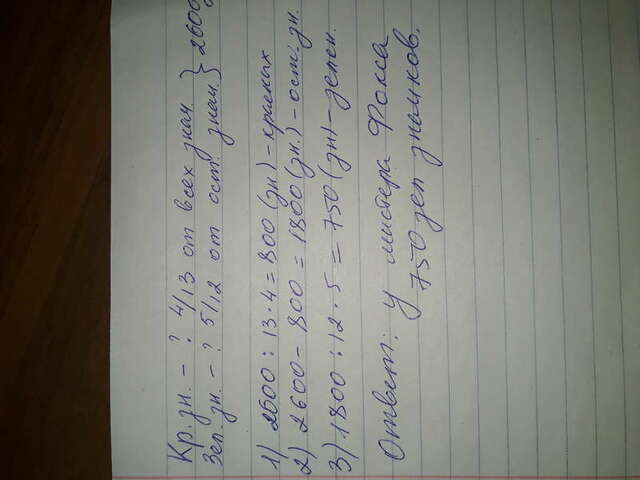 Кр. зн. - ? 4/13 от всех знач. } 2600
Зел. зн. - ? 5/12 от ост. знач.
1) 2600 : 13 · 4 = 800 (зн.) - красных
2) 2600 - 800 = 1800 (зн.) - ост. зн.
3) 1800 : 12 · 5 = 750 (зн) - зелен.
Ответ: у мистера Фокса
750 зел значков.